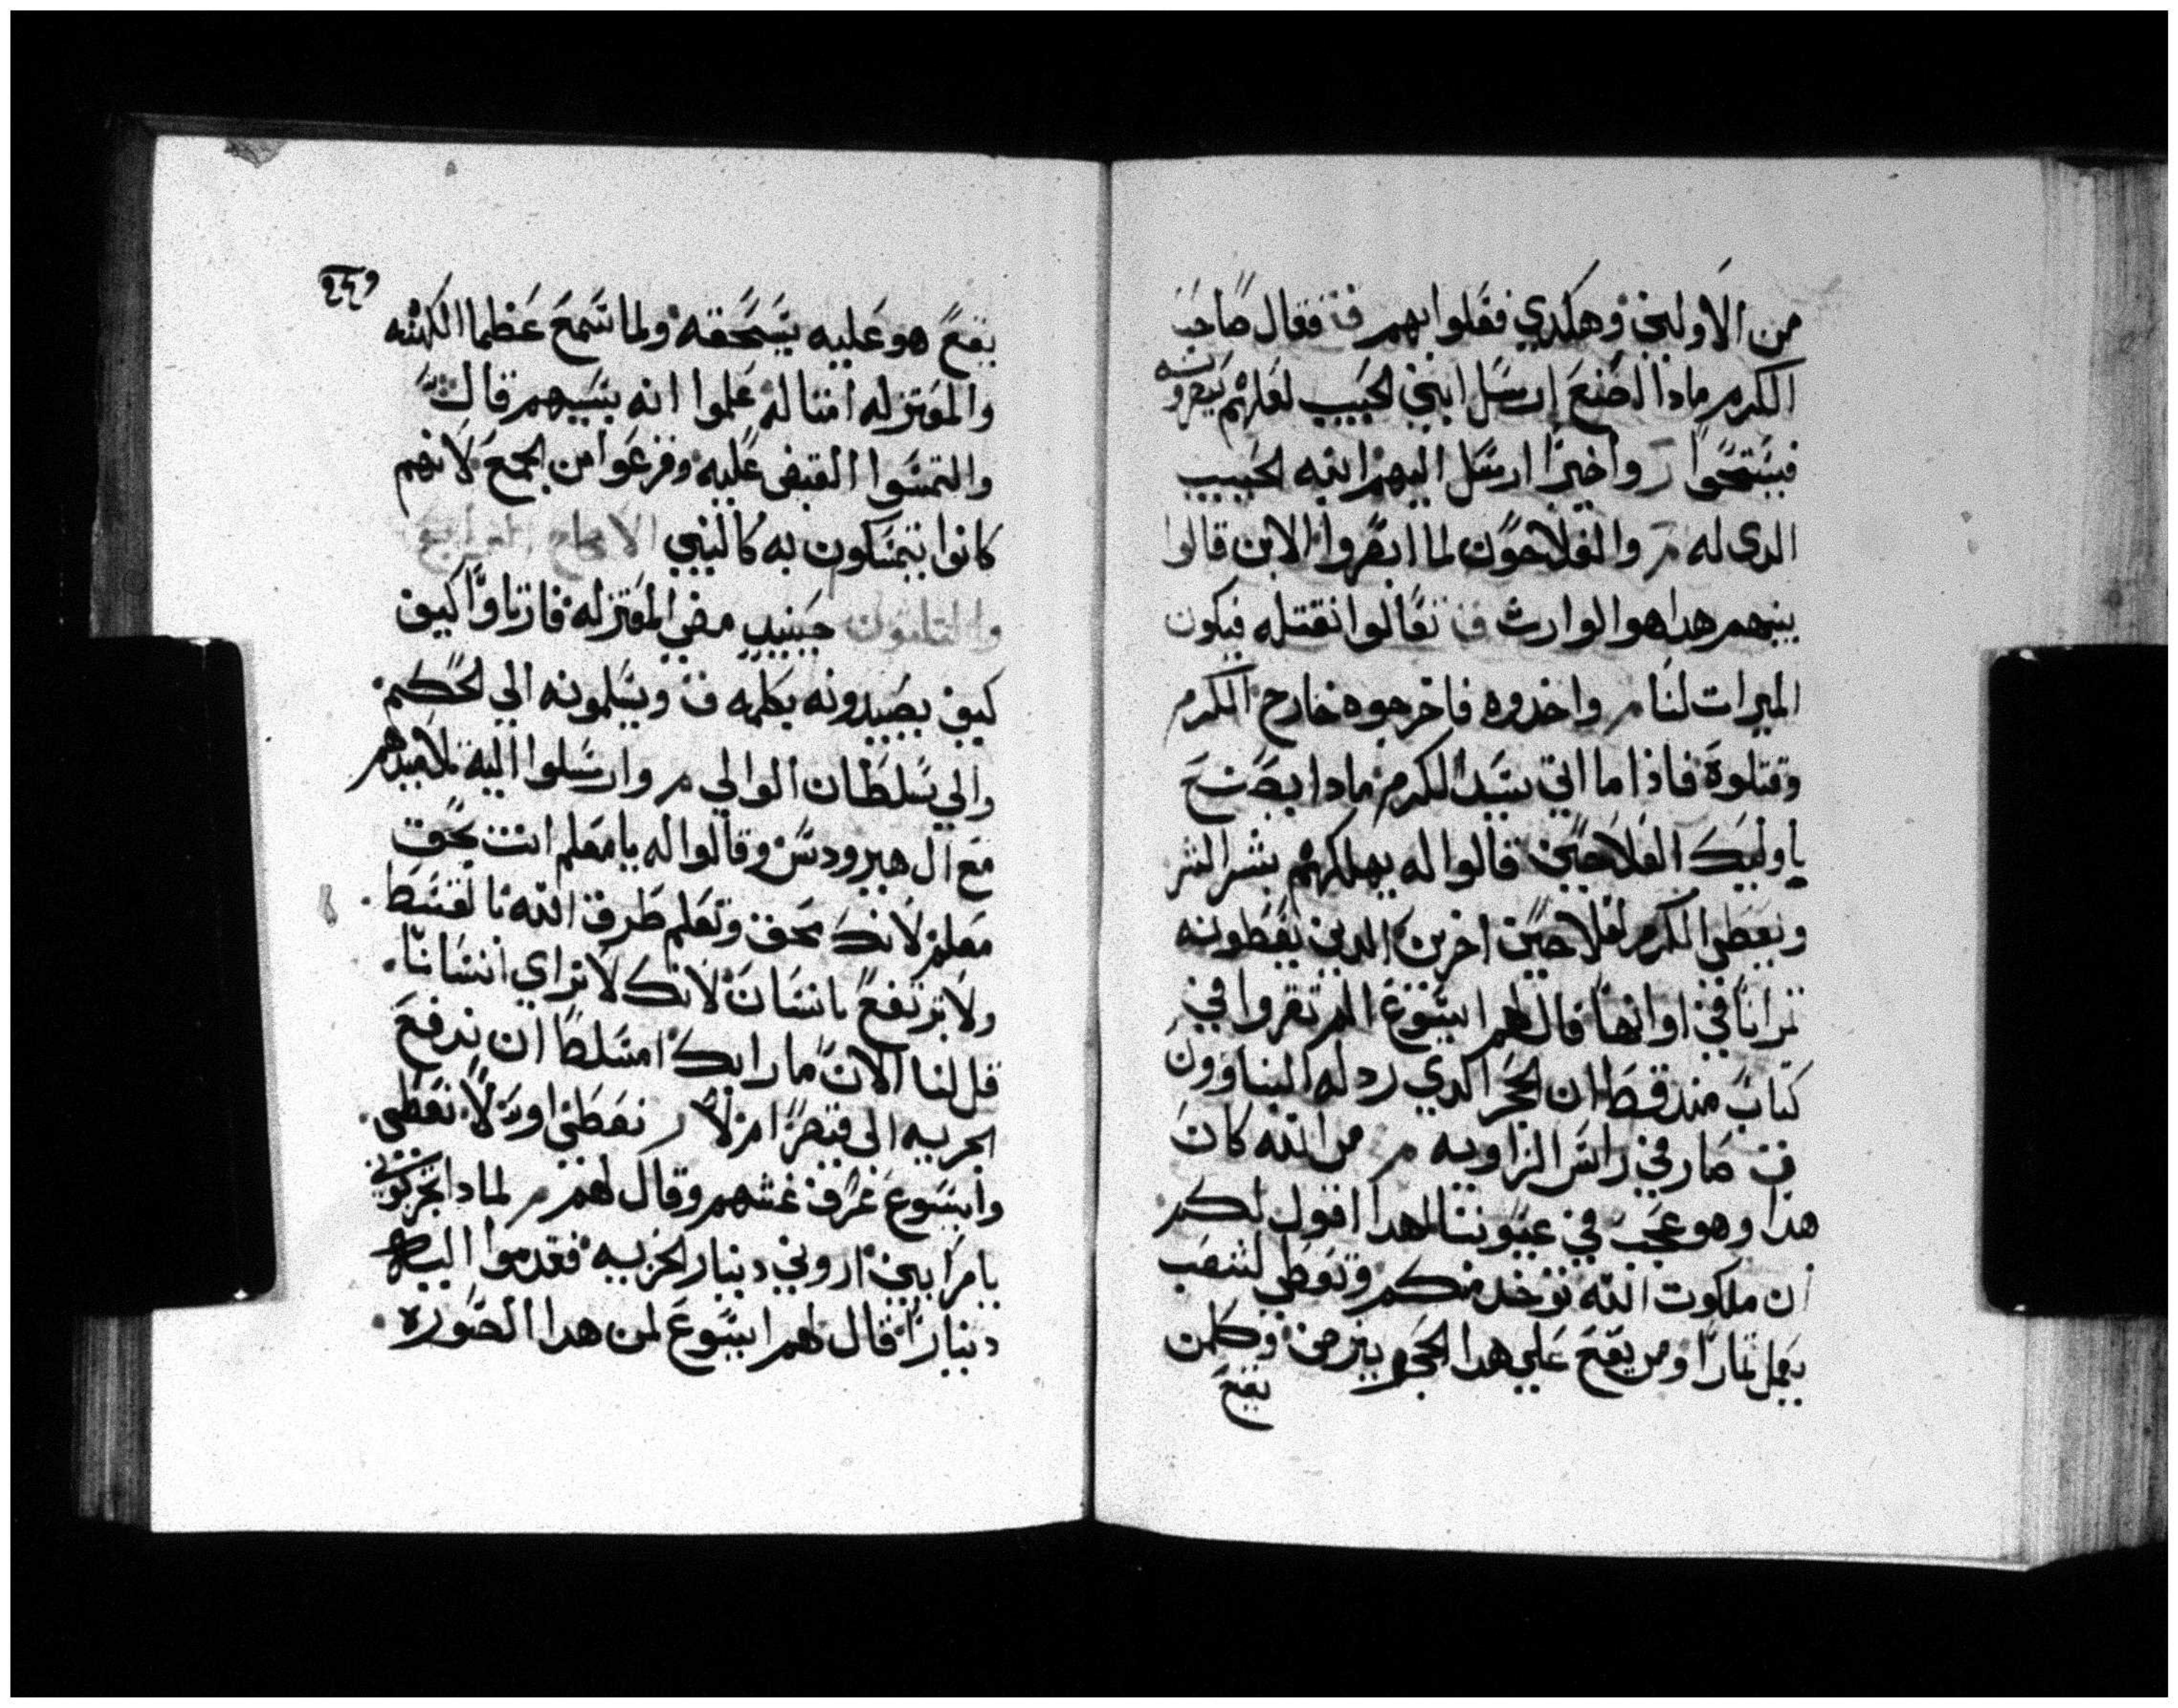 من الاولين وهكدي فعلوا بهم ف فقال صاحب
الكرم مادا اصنع ارسل ابني الحبيب لعلهم يبصرونه
فيستحوا ر واخيرا ارسل اليهم ابنه الحبيب
الدى له م والفلاحون لما ابصروا الابن قالوا
بينهم هدا هو الوارث ف تعالوا نقتله فيكون
الميرات لنا م واخدوه فاخرجوه خارج الكرم
وقتلوه فاذا ما اتي سيد الكرم مادا يصنع
باوليك الفلاحين قالوا له يهلكهم بشر الشر
ويعطي الكرم لفلاحين اخرين الدين يعطونه
تمراتا في اوانها قال لهم ايسوع الم تقروا في
كتاب مند قط ان الحجر الدي رد له البناوون
ف صار في راس الزاويه م من الله كان
هدا وهو عجب في عيوننا لهدا اقول لكم
ان ملكوت الله توخد منكم وتعطي لشعب
يعمل تمارا ومن يقع علي هدا الحجر يترضض وكلمن
يقع
٢٤٩
يقع هو عليه يسحقه ولما سمع عظما الكهنه
والمعتزله امتاله علموا انه بسببهم قال
والتمسوا القبض عليه وفزعوا من الجمع لانهم
كانوا يتمسكون به كالنبي الاصحاح
والتلتون حينيد مضي المعتزله فارتاوا كيف
كيف يصيدونه بكلمه ف ويسلمونه الي الحكم
والي سلطان الوالي م وارسلوا اليه تلاميدهم
مع ال هيرودس وقالوا له يا معلم انت بحق
معلم لانك بحق وتعلم طرق الله بالقسط
ولا ترتفع بانسان لانك لا تراي انسانا
قل لنا الان ما رايك امسلط ان ندفع
الجزيه الى قيصر ام لا ر نعطي او لا نعطي
وايسوع عرف غشهم وقال لهم م لمادا تجربوني
يا مرايين اروني دينار الجزيه فقدموا اليه
دينارا قال لهم ايسوع لمن هدا الصوره